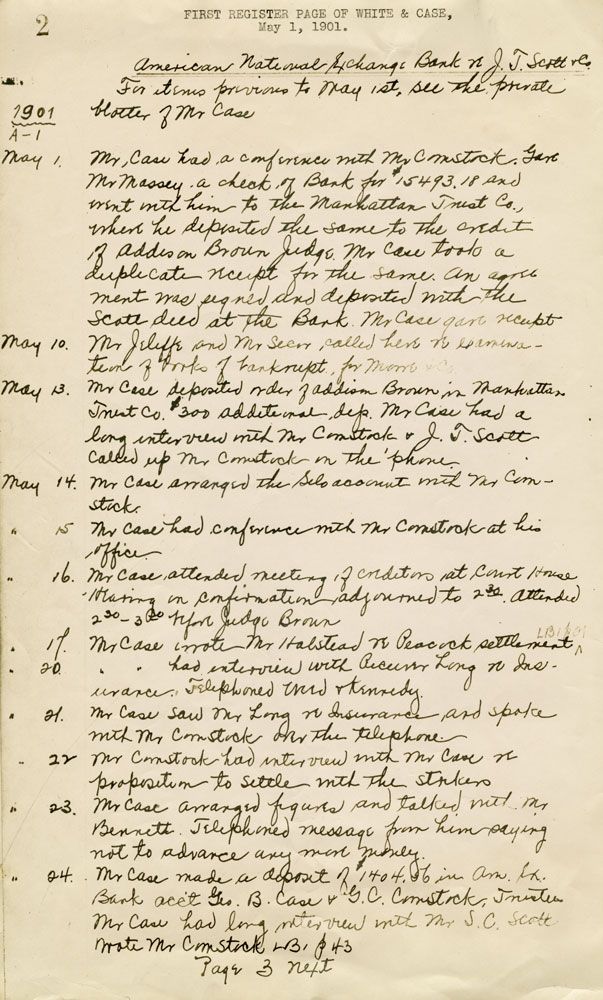 2
FIRST REGISTER PAGE OF WHITE & CASE,
May 1, 1901.
American National Exchange Bank re J. T. Scott & Co
For items previous to May 1st, see the private
1901 blotter of Mr Case
A-1
May 1. Mr. Case had a conference with Mr Comstock. Gave
Mr Massey a check of Bank for $15493.18 and
went with him to the Manhattan Trust Co.,
where he deposited the same to the credit
of Addison Brown Judge. Mr Case took a
duplicate receipt for the same. An agree
ment was signed and deposited with the
Scott deed at the Bank. Mr Case gave receipt
May 10. Mr Jeliffe and Mr Secor called here re examina-
tion of books of bankrupt, for
May 13. Mr Case deposited order of Addison Brown in Manhattan
Trust Co. $300 additional dep. Mr Case had a
long interview with Mr Comstock & J. T. Scott
Called up Mr Comstock on the 'phone.
May 14. Mr Case arranged the account with Mr Com-
stock.
" 15 Mr Case had conference with Mr Comstock at his
office
" 16. Mr Case attended meeting of creditors at Court House
Hearing on confirmation adjourned to 2 30. Attended
2 30 - 3 30 before Judge Brown
" 17. Mr Case wrote Mr Halstead re Peacock settlement
" 20. " " had interview with Receiver Long re Ins-
urance. Telephoned & Kennedy.
" 21. Mr Case saw Mr Long re Insurance and spoke
with Mr Comstock over the telephone.
" 22 Mr Comstock had interview with Mr Case re
proposition to settle with the strikers
" 23. Mr Case arranged figures and talked with Mr
Bennett. Telephoned message from him saying
not to advance any more money.
" 24. Mr Case made a deposit of $1404.56 in Am. Ex.
Bank acc't Geo. B. Case & G. C. Comstock, Trustees
Mr Case had long interview with Mr S. C. Scott
Wrote Mr Comstock LB1 p 43
Page 3 next